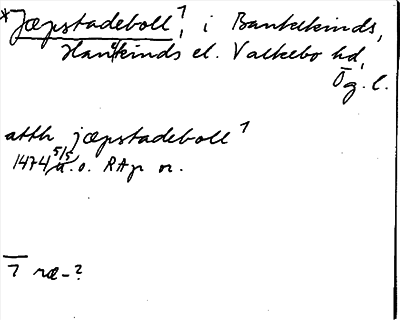 *Jæpstadeboll⁷, i Bankekinds,
Hanekinds el. Valkebo hd,
Ög. l.
atth jæpstadeboll⁷
1474 5/5 u. o. RAp or.
7 ræ-?